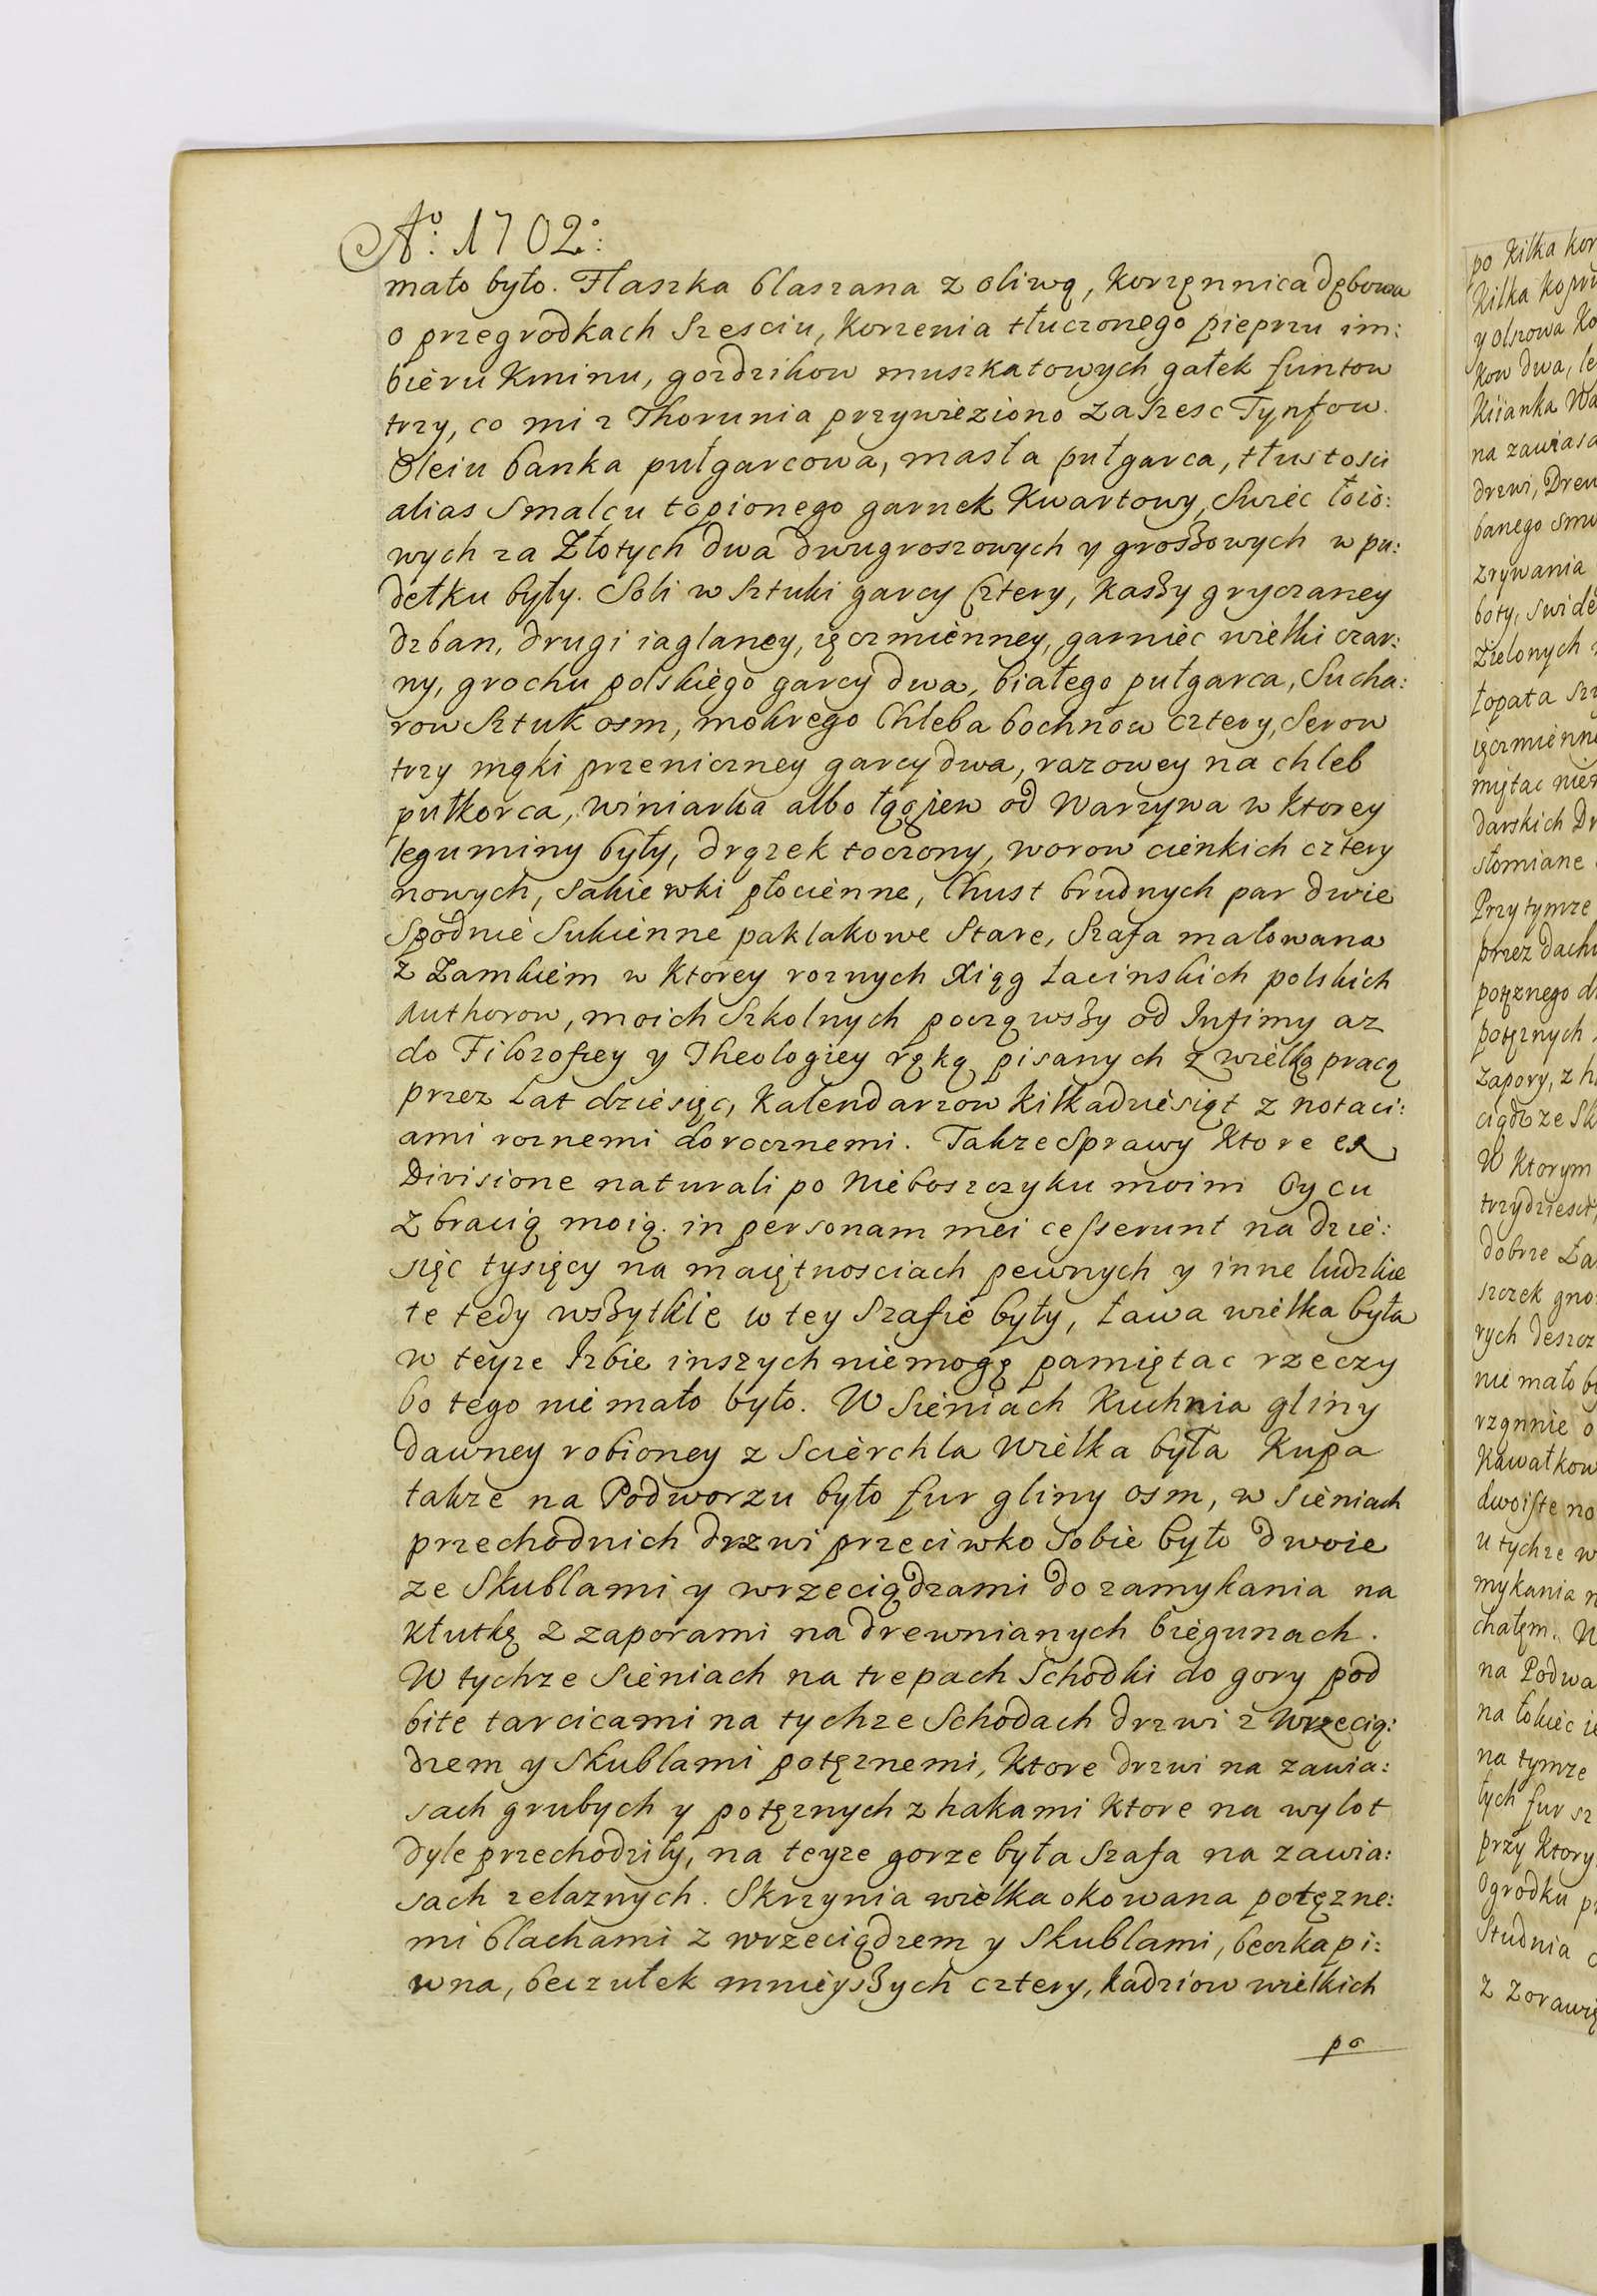 Aº: 1702º:
mało było. Flaszka blaszana z oliwą, korzęnnica dębowa
o przegrodkach szesciu, korzenia tłuczonego pieprzu im:
biéru Kminu, gozdzikow muszkatowych gałek funtow
trzy, co mi z Thorunia przywieziono za szesc Tynfow.
Oleiu banka pułgarcowa, masła pułgarca, tłustosci
alias Smalcu topionego garnek Kwartowy, Swiec łoio:
wych za Złotych dwa dwugroszowych y groszowych w pu:
dełku były. Soli w sztuki garcy cztery, kaszy gryczaney
dzban, drugi iaglaney, ięczmiénney, garniéc wielki czar:
ny, grochu polskiégo garcy dwa, białego pułgarca, Sucha:
row Sztuk osm, mokrego Chleba bochnow cztery, Serow
trzy mąki przeniczney garcy dwa, razowey na chleb
pułkorca, winiarka albo łągiew od Warzywa w ktorey
leguminy były, drązek toczony, worow ciénkich cztery
nowych, sakiewki płociénne, Chust brudnych par dwie
Spodnié Sukiénne paklakowe Stare, Szafa malowana
z Zamkiém w ktorey roznych Xiąg Łacinskich polskich
Authorow, moich Szkolnych począwszy od Infimy az
do Filozofiey y Theologiey ręką pisanych z wielką pracą
przez Lat dziesięc, Kalendarzow kilkadziésiąt z notaci:
ami roznemi dorocznemi. Takze Sprawy ktore ex
Divisione naturali po Niéboszczyku moim Oycu
z bracią moią. in personam mei cesserunt na dzié:
sięc tysięcy na maiętnosciach pewnych y inne ludzkie
te tedy wszytkie w tey Szafié były, Ława wielka była
w teyze Izbie inszych niemogę pamiętac rzeczy
bo tego nié mało było. W Siéniach Kuchnia gliny
dawney robioney z Sciérchla Wiélka była Kupa
takze na Podworzu było fur gliny osm, w Siéniach
przechodnich drzwi przeciwko Sobie było dwoie
ze Skublami y wrzeciądzami do zamykania na
kłutkę z zaporami na drewnianych biégunach.
W tychze Siéniach na trepach Schodki do gory pod
bite tarcicami na tychze Schodach drzwi z wrzecią:
dzem y Skublami potęznemi, ktore drzwi na zawia:
sach grubych y potęznych z hakami ktore na wylot
dyle przechodziły, na teyze gorze była Szafa na zawia:
sach zelaznych. Skrzynia wielka okowana potęzne:
mi blachami z wrzeciądzem y Skublami, beczka pi:
wna, beczułek mniéyszych cztery, kadziow wielkich
po
po kilka
kilka
y olszowa
kow dwa,
Kiianka
na
drzwi,
banego
zrywania
boty,
Zielonych
Łopata
darskich
słomiane
Przy tymze
przez
potęznego
potęznych
zapory, z
W ktorym
dobrze
szczek
rych
nié mało
kawałkow
dwoiste
u tychze
mykania
na
na łokiéc
na tymze
tych fur
przy
Ogrodku
Studnia
z